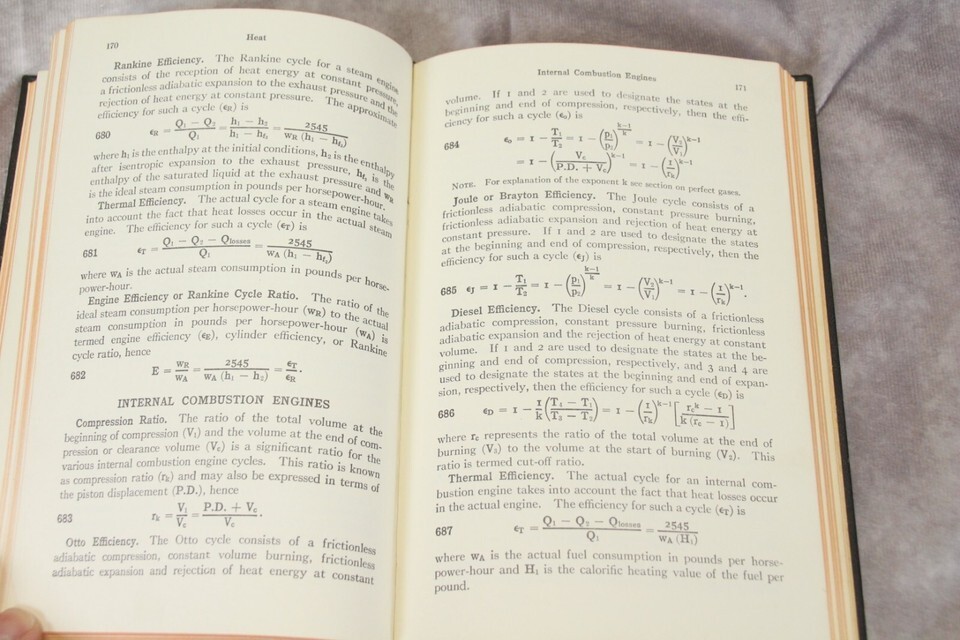 170
Heat
Rankine Efficiency. The Rankine cycle for a steam engine
consists of the reception of heat energy at constant pressure,
a frictionless adiabatic expansion to the exhaust pressure and the
rejection of heat energy at constant pressure. The approximate
efficiency for such a cycle (εR) is
680 εR = (Q1 − Q2)/Q1 = (h1 − h2)/(h1 − hf2) = 2545/(wR (h1 − hf2))
where h1 is the enthalpy at the initial conditions, h2 is the enthalpy
after isentropic expansion to the exhaust pressure, hf2 is the
enthalpy of the saturated liquid at the exhaust pressure and wR
is the ideal steam consumption in pounds per horsepower-hour.
Thermal Efficiency. The actual cycle for a steam engine takes
into account the fact that heat losses occur in the actual steam
engine. The efficiency for such a cycle (εT) is
681 εT = (Q1 − Q2 − Qlosses)/Q1 = 2545/(wA (h1 − hf2))
where wA is the actual steam consumption in pounds per horse-
power-hour.
Engine Efficiency or Rankine Cycle Ratio. The ratio of the
ideal steam consumption per horsepower-hour (wR) to the actual
steam consumption in pounds per horsepower-hour (wA) is
termed engine efficiency (εE), cylinder efficiency, or Rankine
cycle ratio, hence
682 E = wR/wA = 2545/(wA (h1 − h2)) = εT/εR.
INTERNAL COMBUSTION ENGINES
Compression Ratio. The ratio of the total volume at the
beginning of compression (V1) and the volume at the end of com-
pression or clearance volume (Vc) is a significant ratio for the
various internal combustion engine cycles. This ratio is known
as compression ratio (rk) and may also be expressed in terms of
the piston displacement (P.D.), hence
683 rk = V1/Vc = (P.D. + Vc)/Vc.
Otto Efficiency. The Otto cycle consists of a frictionless
adiabatic compression, constant volume burning, frictionless
adiabatic expansion and rejection of heat energy at constant
Internal Combustion Engines
171
volume. If 1 and 2 are used to designate the states at the
beginning and end of compression, respectively, then the effi-
ciency for such a cycle (εo) is
684 εo = 1 − T1/T2 = 1 − (p1/p2)^((k−1)/k) = 1 − (V2/V1)^(k−1)
= 1 − (Vc/(P.D. + Vc))^(k−1) = 1 − (1/rk)^(k−1)
NOTE. For explanation of the exponent k see section on perfect gases.
Joule or Brayton Efficiency. The Joule cycle consists of a
frictionless adiabatic compression, constant pressure burning,
frictionless adiabatic expansion and rejection of heat energy at
constant pressure. If 1 and 2 are used to designate the states
at the beginning and end of compression, respectively, then the
efficiency for such a cycle (εJ) is
685 εJ = 1 − T1/T2 = 1 − (p1/p2)^((k−1)/k) = 1 − (V2/V1)^(k−1) = 1 − (1/rk)^(k−1).
Diesel Efficiency. The Diesel cycle consists of a frictionless
adiabatic compression, constant pressure burning, frictionless
adiabatic expansion and the rejection of heat energy at constant
volume. If 1 and 2 are used to designate the states at the be-
ginning and end of compression, respectively, and 3 and 4 are
used to designate the states at the beginning and end of expan-
sion, respectively, then the efficiency for such a cycle (εD) is
686 εD = 1 − 1/k ((T4 − T1)/(T3 − T2)) = 1 − (1/rk)^(k−1) [(rc^k − 1)/(k (rc − 1))]
where rc represents the ratio of the total volume at the end of
burning (V3) to the volume at the start of burning (V2). This
ratio is termed cut-off ratio.
Thermal Efficiency. The actual cycle for an internal com-
bustion engine takes into account the fact that heat losses occur
in the actual engine. The efficiency for such a cycle (εT) is
687 εT = (Q1 − Q2 − Qlosses)/Q1 = 2545/(wA (H1))
where wA is the actual fuel consumption in pounds per horse-
power-hour and H1 is the calorific heating value of the fuel per
pound.